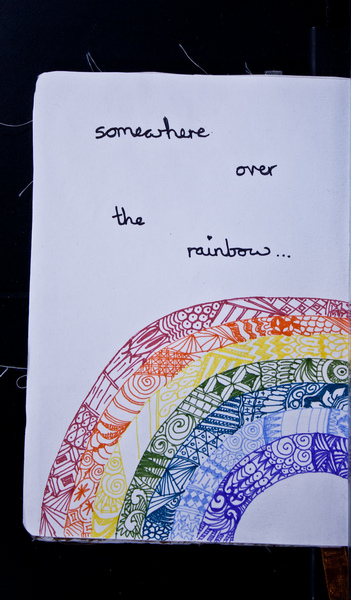 somewhere
over
the
rainbow...